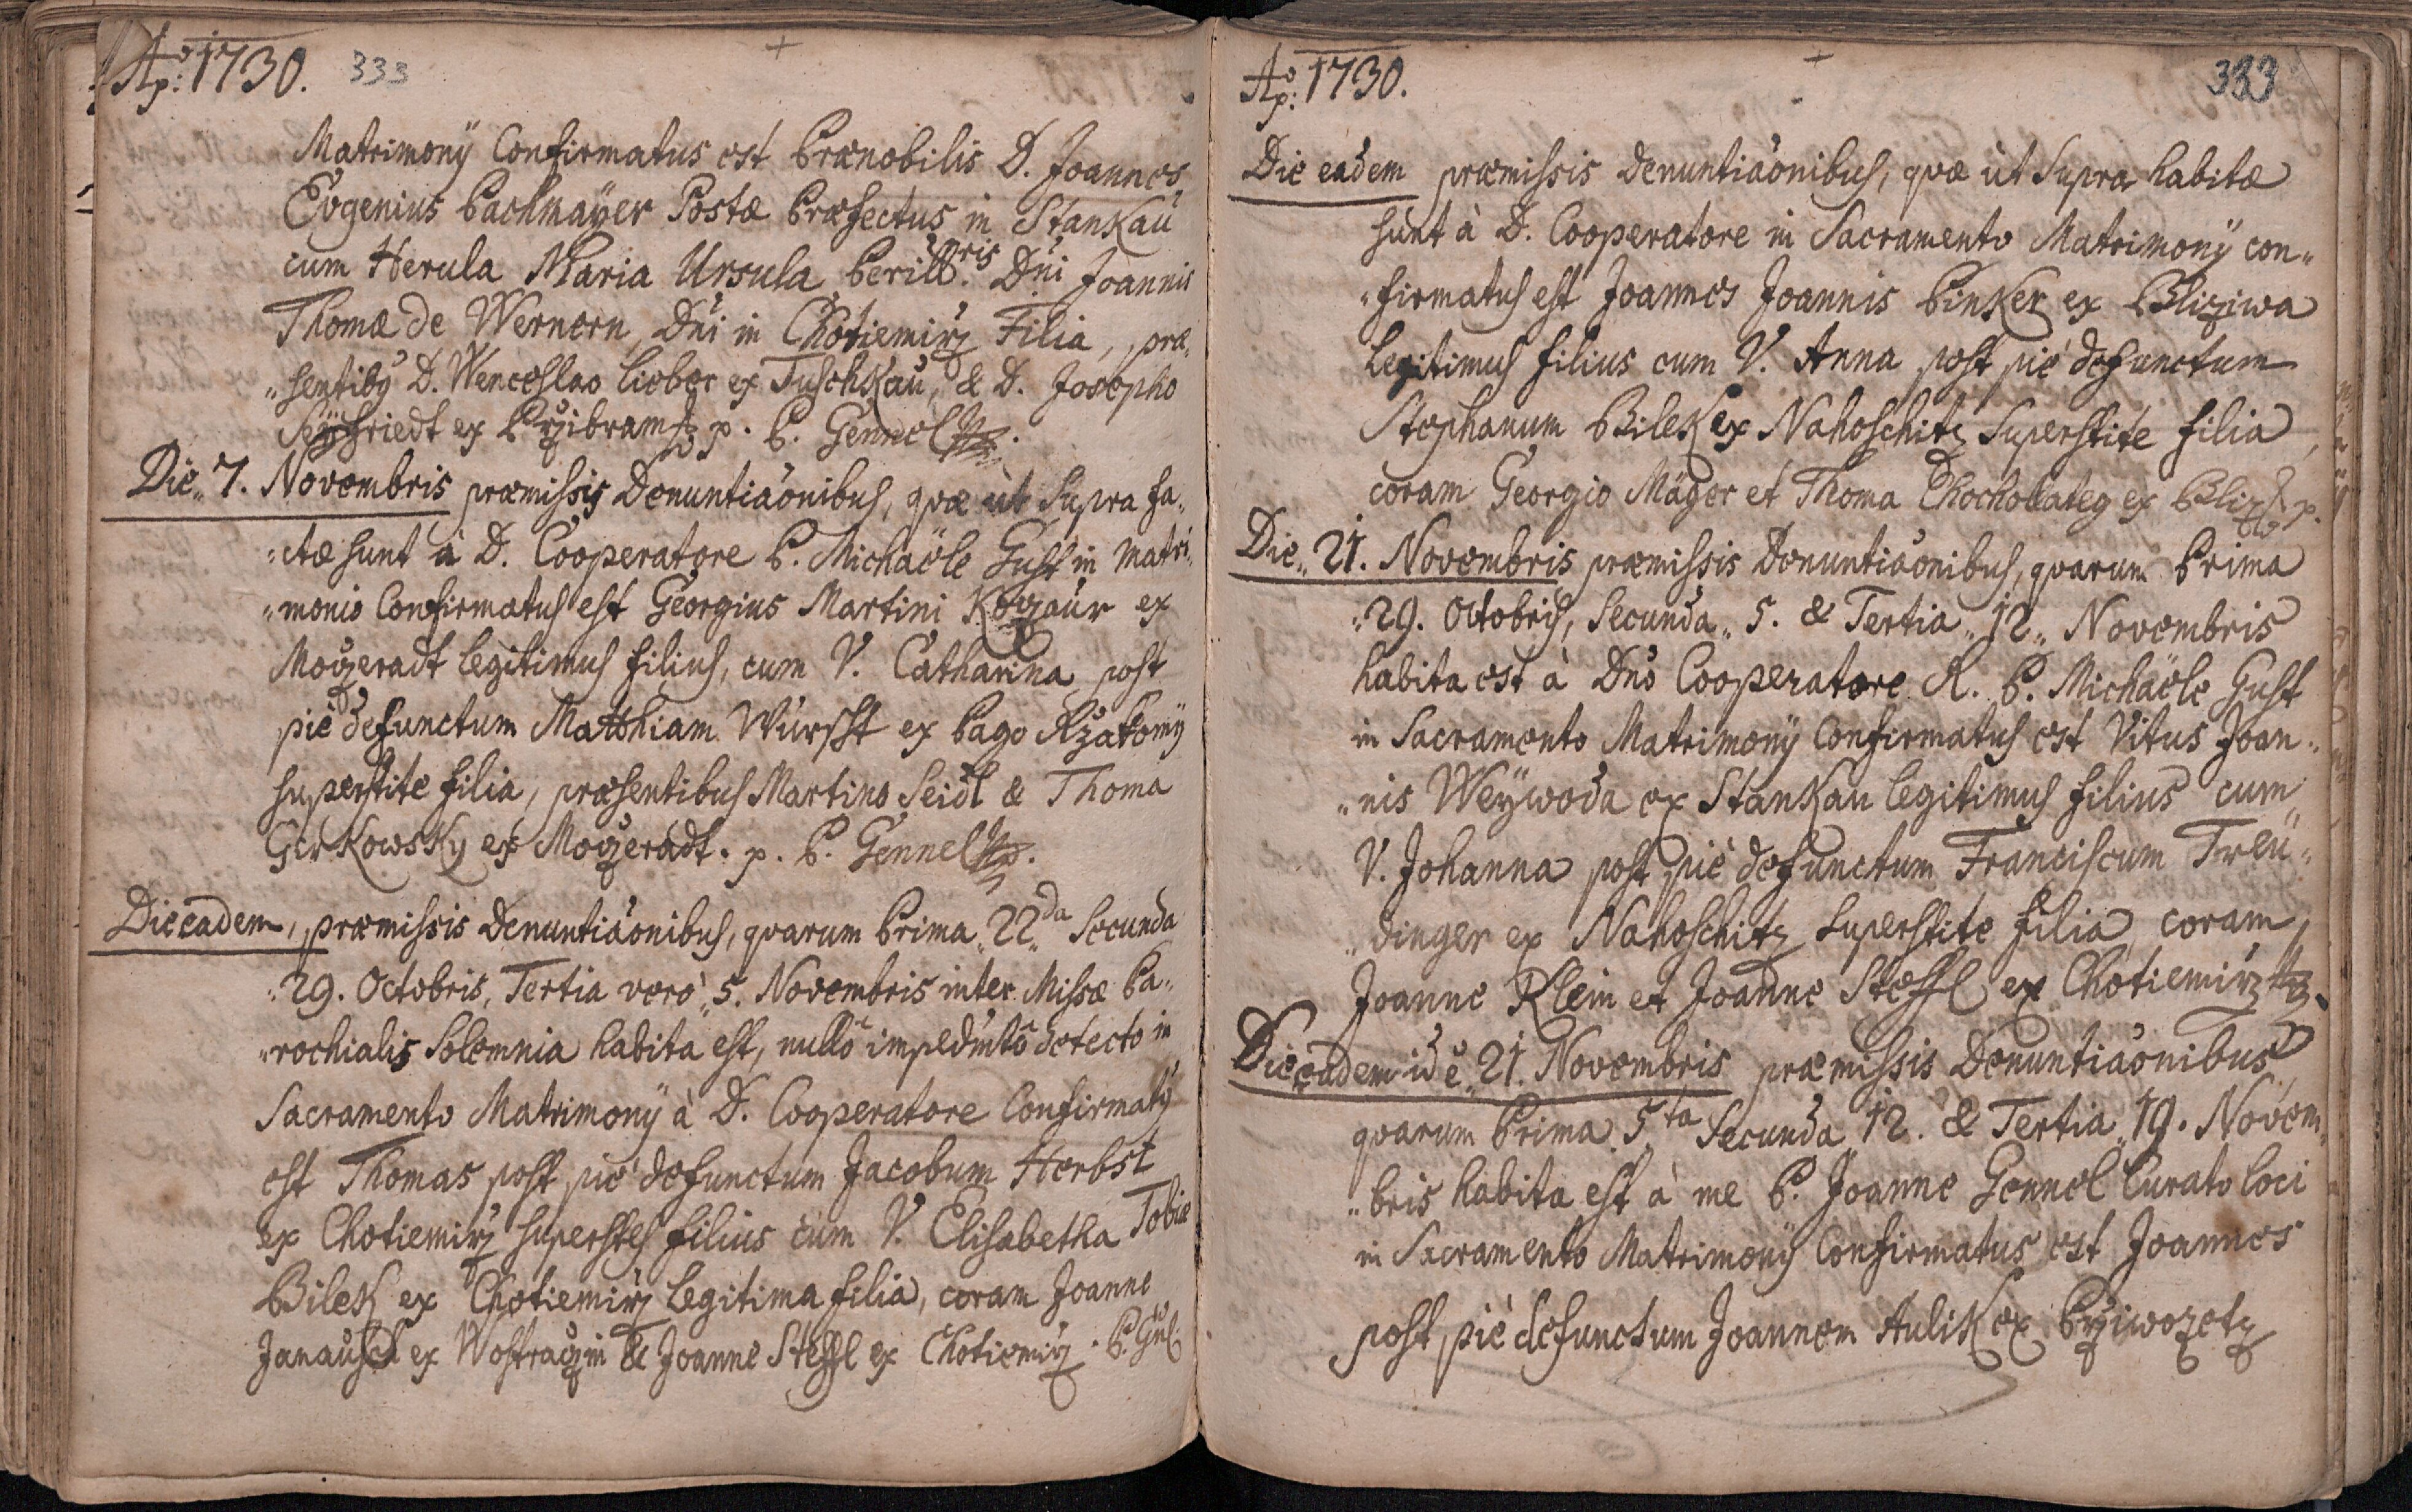 Aº: 1730. 333
Matrimonÿ Confirmatus est Prænobilis D. Joannes
Evgenius Pachmaÿer Postæ Præfectus in Stankau
cum Herula Maria Ursula Perill:ris Dni Joannis
Thomæ de Wernern, Dni in Chotiemirz Filia, præ„
„sentibg D. Wenceslao Lieber ex Tuschkau, & D. Josepho
Seÿfriedt ex Przibram p. P. Gennel
Die„ 7. Novembris præmissis Denuntiaónibus, qvæ ùt Supra fa„
„ctæ sunt à D. Cooperatore P. Michaële Gust in Matri„
„monio Confirmatus est Georgius Martini Kozaur ex
Mogzeradt legitimus filius, cum V. Catharina post
piè defunctum Matthiam Würfft ex Pago Rzakomÿ
superstite filia, præsentibus Martino Seidl & Thoma
Girkowsky ex Mogzeradt. p. P. Gennel
Die eadem, præmissis Denuntiaónibus, qvarum Prima „22„da Secunda
„29. Octobris, Tertia verò „5. Novembris inter Missæ Pa„
„rochialis Solemnia habita est, nullo impedmto detecto in
Sacramento Matrimonÿ à D. Cooperatore Confirmatg
est Thomas post piè defunctum Jacobum Herbst
ex Chotiemirz superstes filius cum V. Elisabetha Tobiæ
Bilek ex Chotiemirz Legitima filia, coram Joanne
Janausch ex Wostraczin & Joanne Steffl ex Chotiemirz. P. Gñl
Aº: 1730. 333
Die eadem præmissis Denuntiaónibus, qvæ ùt Supra habitæ
sunt à D. Cooperatore in Sacramento Matrimonÿ con„
„firmatus est Joannes Joannis Pinker ex Bliziwa
Legitimus filius cum V. Anna post piè defunctum
Stephanum Bilek ex Nahoschitz Superstite filia,
coram Georgio Mäger et Thoma Chocholateg ex Bliz p.
Die„ 21. Novembris præmissis Denuntiaónibus, qvarum Prima
„29. Octobris, Secunda„ 5. & Tertia „12„ Novembris
habita est à Dno Cooperatore R. P. Michaële Gust
in Sacramento Matrimonÿ Confirmatus est Vitus Joan„
„nis Weÿwoda ex Stankau legitimus filius cum
V. Johanna post piè defunctum Franciscum Treü„
„dinger ex Nahoschitz superstite filia, coram
Joanne Klein et Joanne Steffl ex Chotiemirz
Die eadem id è „21. Novembris præmissis Denuntiaónibus
qvarum Prima 5ta Secunda 12. & Tertia „19. Novem„
„bris habita est à me P. Joanne Gennel Curato Loci
in Sacramento Matrimonÿ Confirmatus est Joannes
post piè defunctum Joannem Aulik ex Przivozetz